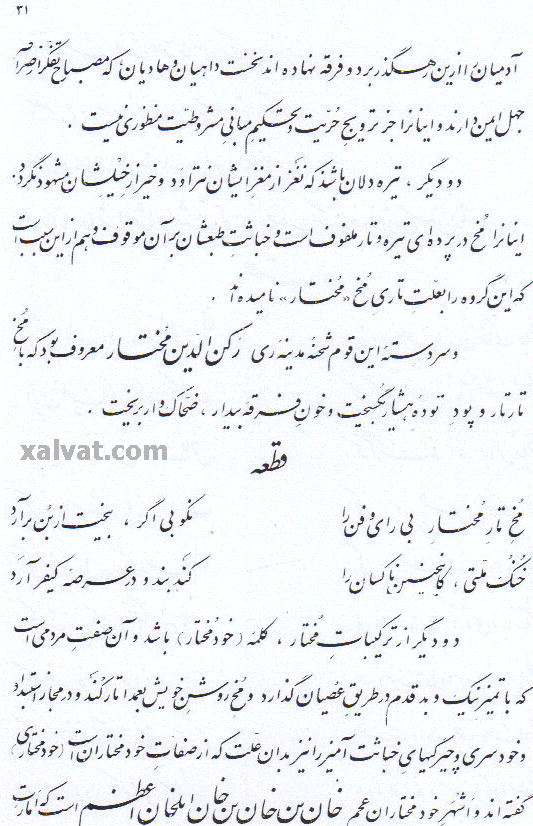 ۳۱
آدمیان را ازین رهگذر برد و فرقه نهاده اند نخست داهیان و هادیان که مصباح تفکر از صرصر
جهل ایمن دارند و اینانرا جز ترویج حریت و تحکیم مبانی مشروطیت منظوری نیست .
دو دیگر ، تیره دلان باشند که نغز از مغز ایشان نتراود و خیر از خیلشان مشهود نگردد.
اینانرا مُخ در پرده ای تیره و تار ملفوف است و خباثتِ طبعشان بر آن موقوف و هم از این سبب است
که این گروه را بعلتِ تاریِ مُخ «مُختار» نامیده اند .
و سر دستهٔ این قوم شحنهٔ مدینهٔ ری رکن الدّین مُختار معروف بود که با مُخِ
تار تار و پودِ تودهٔ هشیار بگسیخت و خونِ فرقهٔ بیدار ، ضحّاک وار بریخت .
xalvat.com
قطعه
مُخِ تارِ مُختارِ بی رای و فن را نکوبی اگر ، بیخت از بُن برآرد
خُنُک ملتی ، کاینچنین ناکسان را کَند بند و در عرصهٔ کیفر آرد
دو دیگر از ترکیباتِ مُختار ، کلمهٔ (خود مُختار) باشد و آن صفتِ مردمی است
که با تمیزِ نیک و بد قدم در طریقِ عصیان گذارد و مُخِ روشنِ خویش بعمد تار کُند و در مجازِ استبداد
و خودسری و چیرگیهای خباثت آمیز را نیز بدان علّت که از صفاتِ خود مختاران است (خود مختاری)
گفته اند و اَشهَرِ خود مختارانِ عجم خان بن خان بن خان ایلخان اعظم است که امارتِ